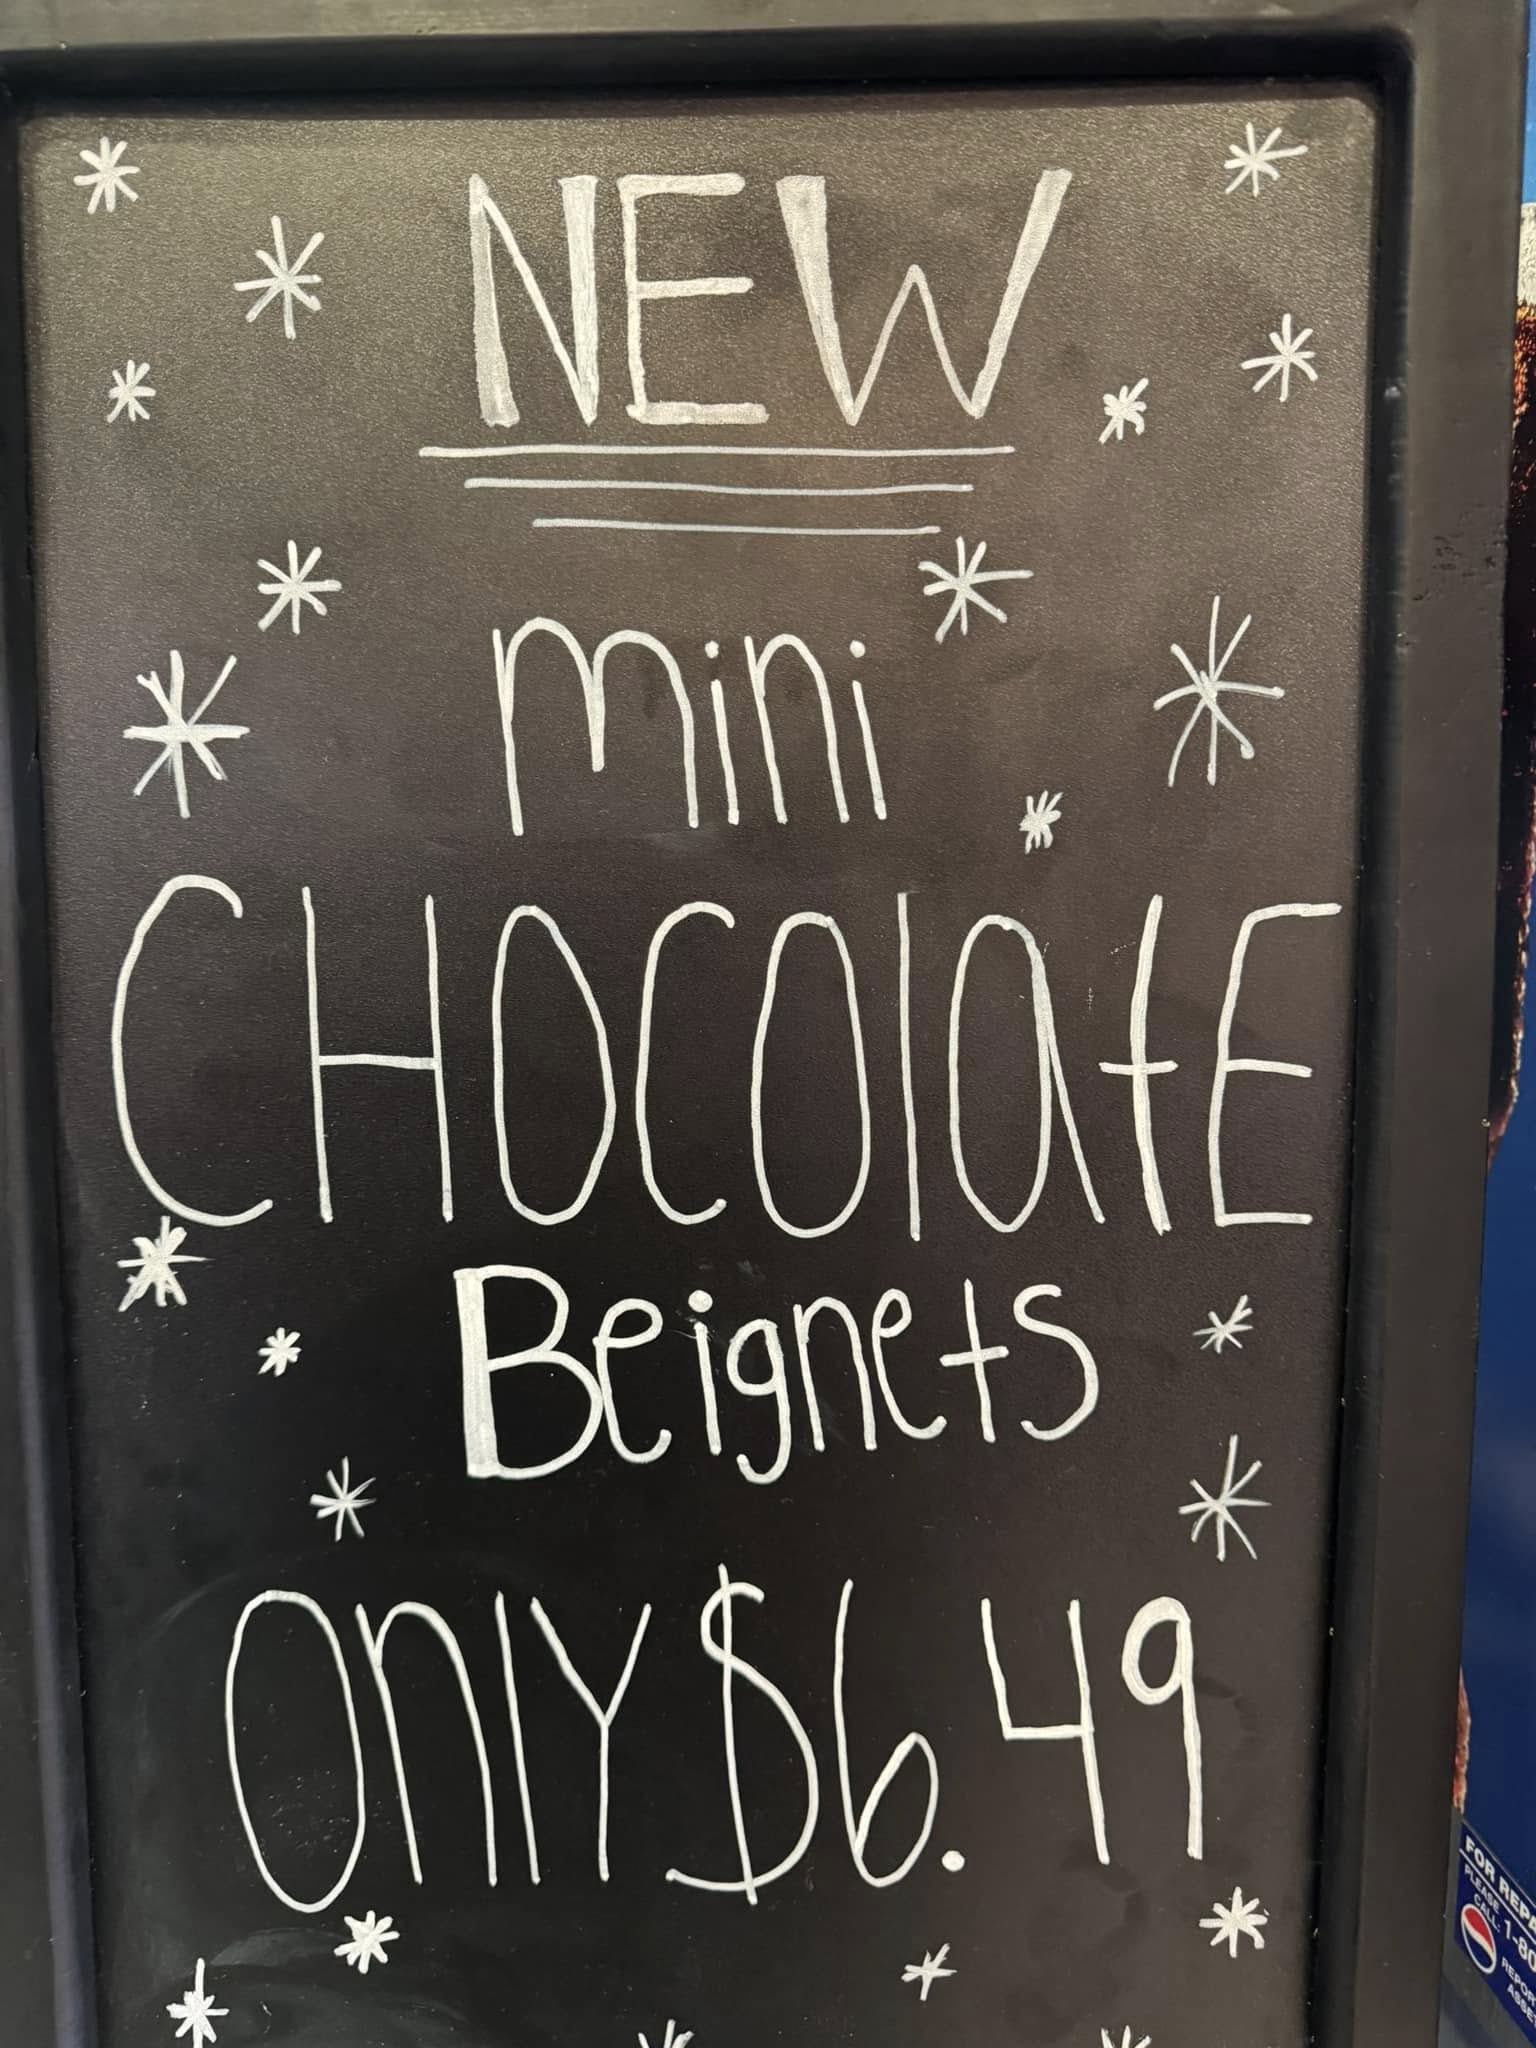 NEW
mini
CHOColatE
Beignets
Only $6.49
FOR REPA
PLEASE
CALL: 1-80
REPOR
ASSE